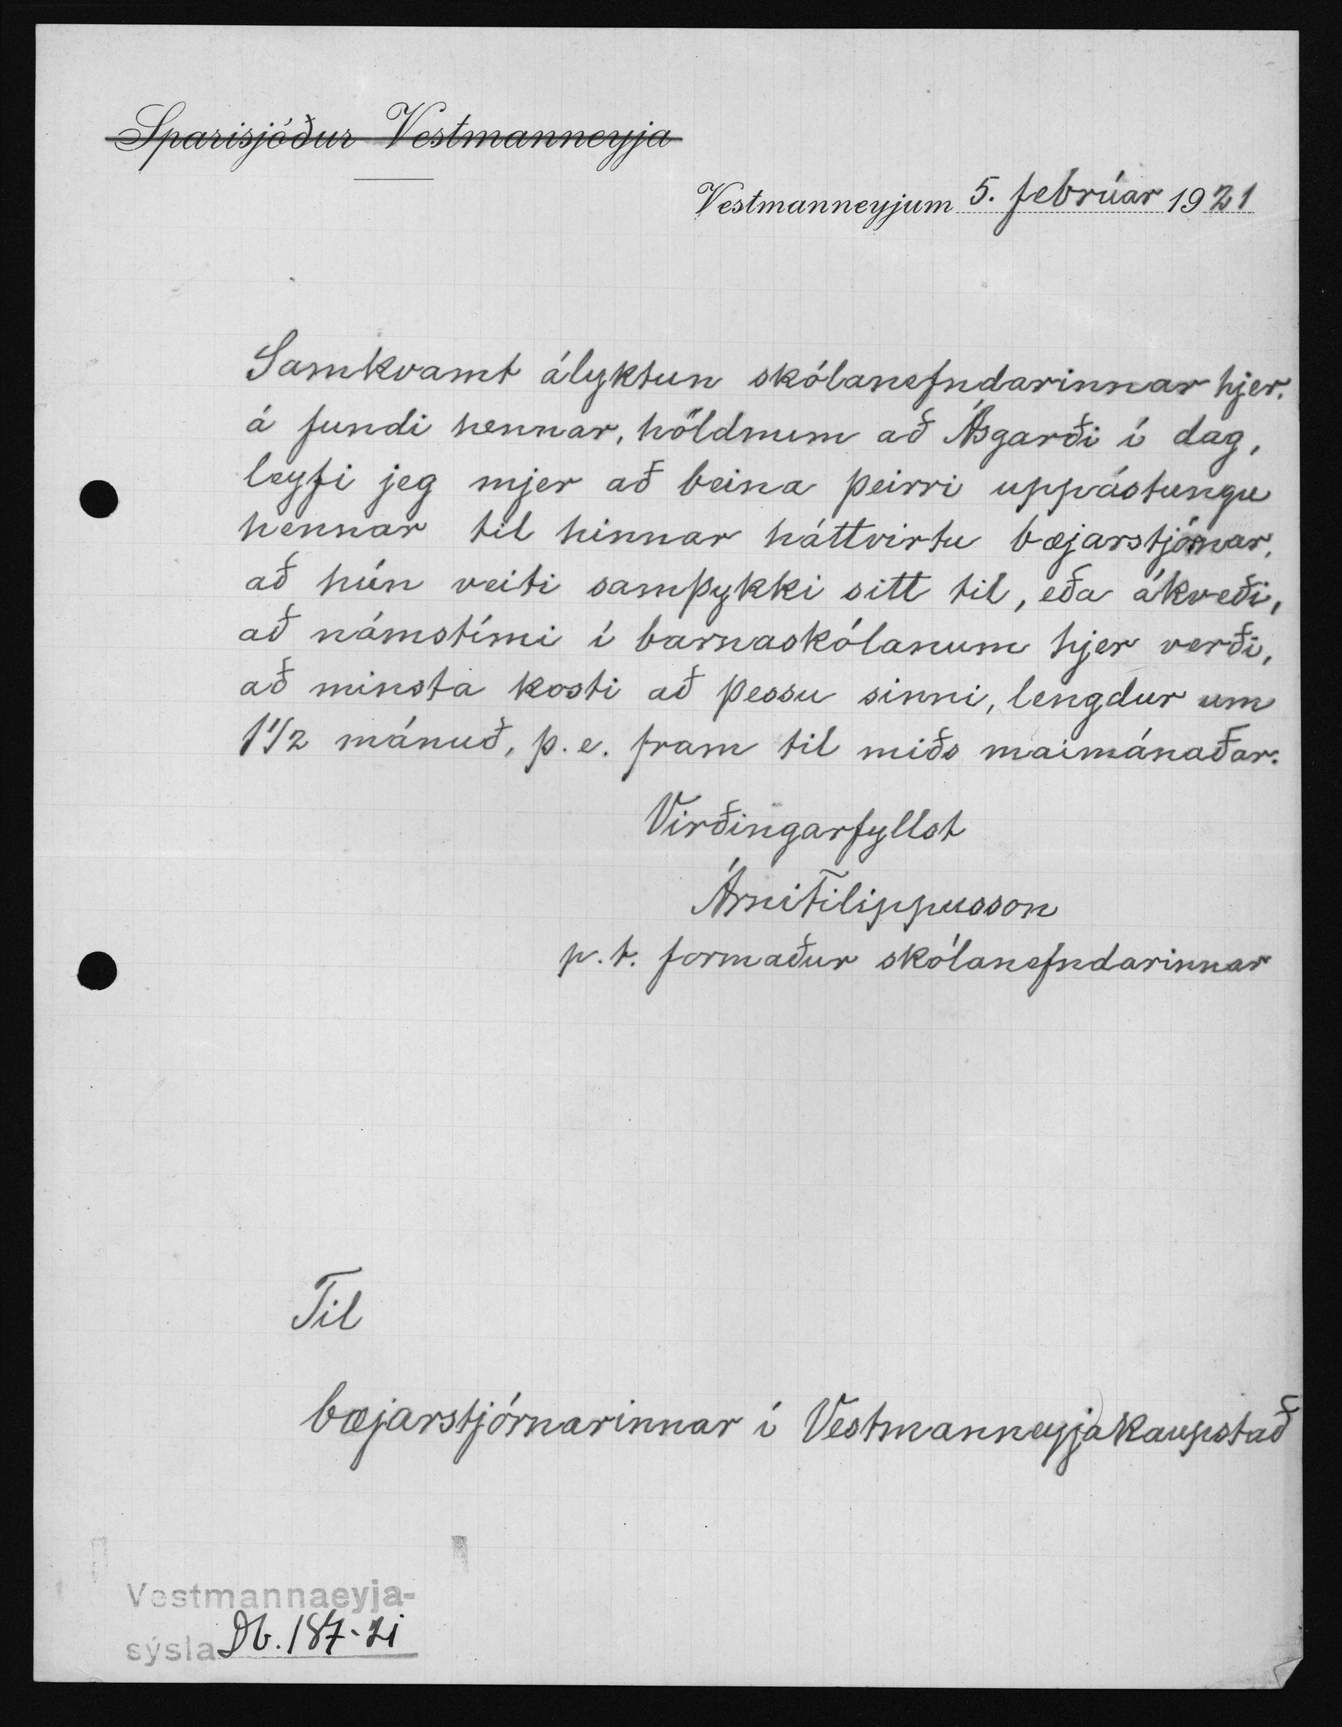 Sparisjóður Vestmanneyja
Vestmanneyjum 5. febrúar 1921
Samkvamt ályktun skólanefndarinnar hjer,
á fundi hennar, höldnum að Ásgarði í dag,
leyfi jeg mjer að beina þeirri uppástungu
hennar til hinnar háttvirtu bæjarstjórnar,
að hún veiti samþykki sitt til, eða ákveði,
að námstími í barnaskólanum hjer verði,
að minsta kosti að þessu sinni, lengdur um
1 1/2 mánuð, þ.e. fram til miðs maimánaðar.
Virðingarfyllst
Árni Filippusson
p.t. formaður skólanefndarinnar
Til
bæjarstjórnarinnar í Vestmanneyjakaupstað
Vestmannaeyja-
sýsla Db. 187-21